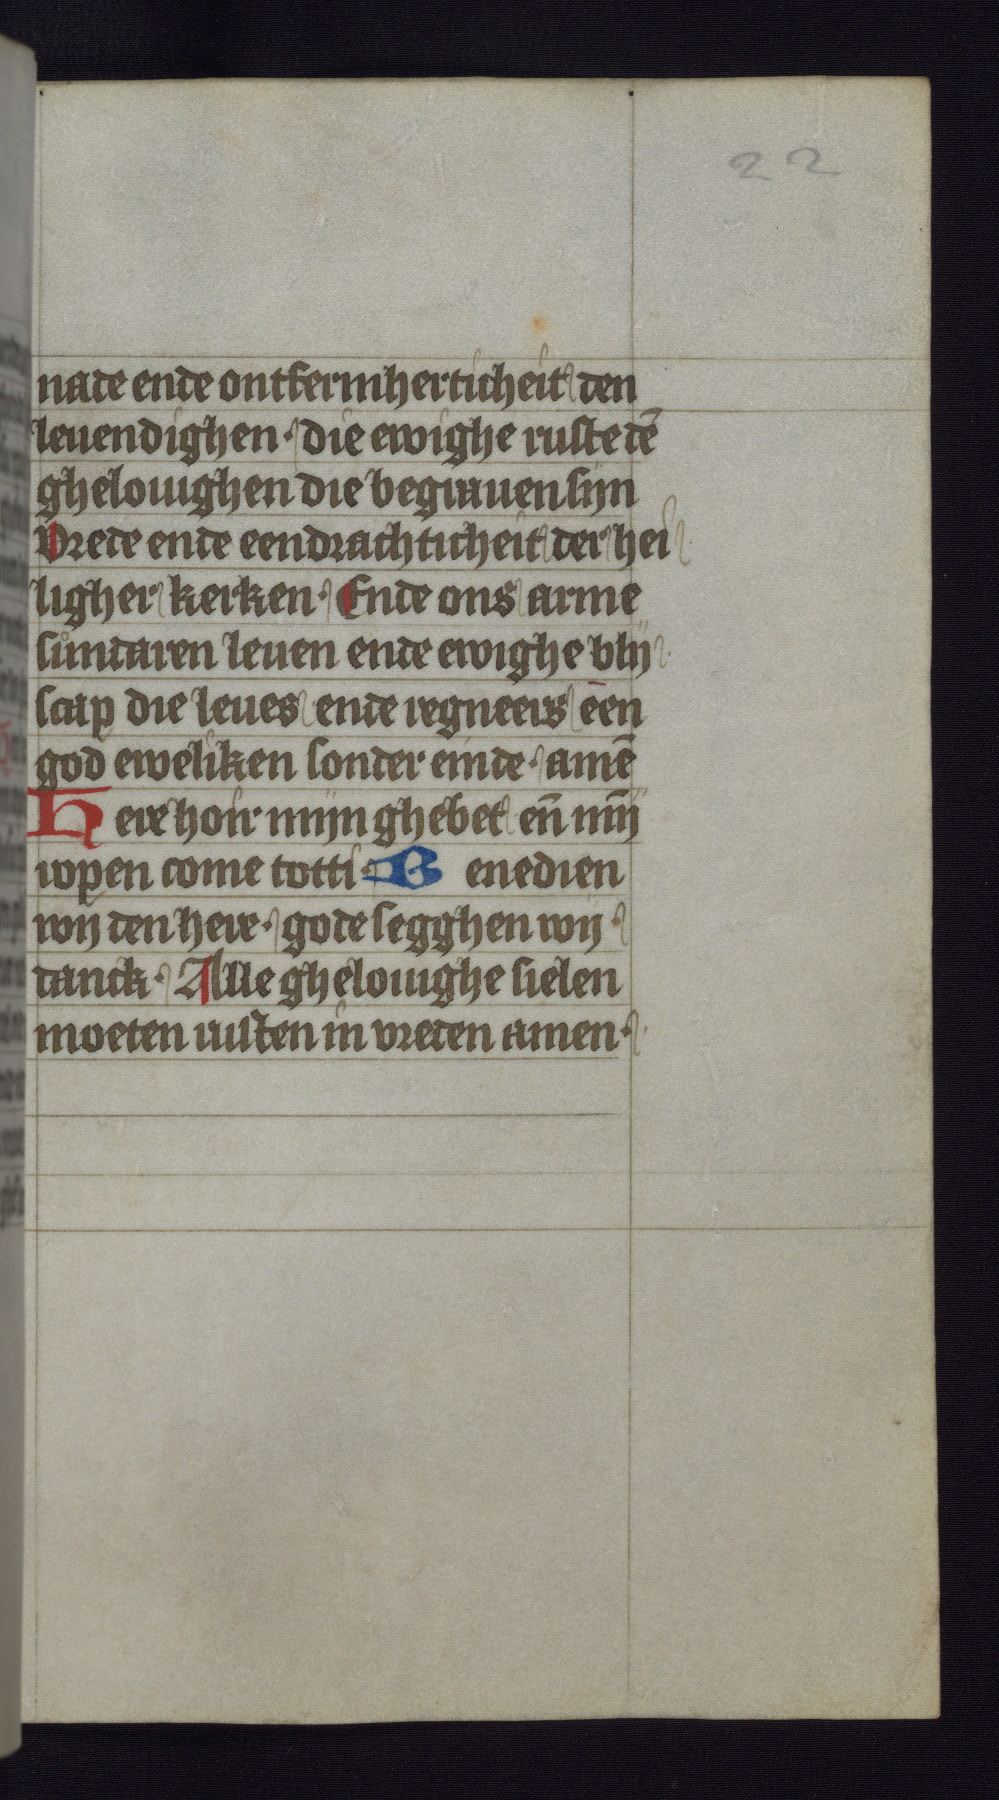 22
nade ende ontfermherticheit den
leuendighen · die ewighe ruste dē
ghelouighen die begrauen sijn
Vrede ende eendrachticheit der hei
ligher kerken · Ende ons arme
sůndaren leuen ende ewighe blij
scap die leues ende regneers een
god eweliken sonder einde · amē
Here hoir mijn ghebet eñ mij̄
ropen come totti · Benedien
wij den here · gode segghen wij ·
danck · Alle ghelouighe sielen
moeten rusten in vreden amen ·